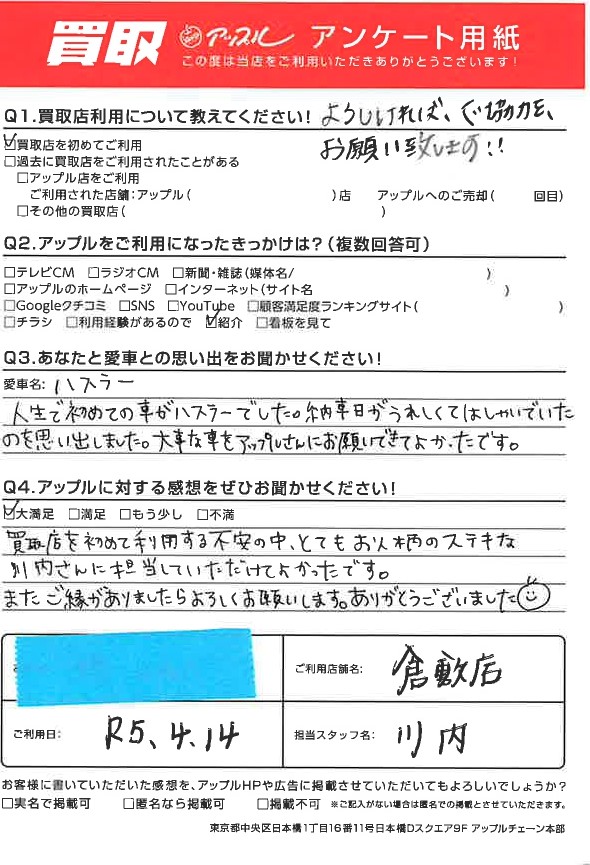 買取 アップル アンケート用紙
この度は当店をご利用いただきありがとうございます!
Q1.買取店利用について教えてください!
よろしければ、ご協力を、
お願い致します!!
☑買取店を初めてご利用
□過去に買取店をご利用されたことがある
□アップル店をご利用
ご利用された店舗:アップル( )店 アップルへのご売却( 回目)
□その他の買取店( )
Q2.アップルをご利用になったきっかけは?(複数回答可)
□テレビCM □ラジオCM □新聞・雑誌(媒体名/ )
□アップルのホームページ □インターネット(サイト名 )
□Googleクチコミ □SNS □YouTube □顧客満足度ランキングサイト( )
□チラシ □利用経験があるので ☑紹介 □看板を見て
Q3.あなたと愛車との思い出をお聞かせください!
愛車名: ハスラー
人生で初めての車がハスラーでした。納車日がうれしくてはしゃいでいた
のを思い出しました。大事な車をアップルさんにお願いできてよかったです。
Q4.アップルに対する感想をぜひお聞かせください!
☑大満足 □満足 □もう少し □不満
買取店を初めて利用する不安の中、とてもお人柄のステキな
川内さんに担当していただけてよかったです。
またご縁がありましたらよろしくお願いします。ありがとうございました
ご利用店舗名: 倉敷店
ご利用日: R5.4.14 担当スタッフ名: 川内
お客様に書いていただいた感想を、アップルHPや広告に掲載させていただいてもよろしいでしょうか?
□実名で掲載可 □匿名なら掲載可 □掲載不可 ※ご記入がない場合は匿名での掲載とさせていただきます。
東京都中央区日本橋1丁目16番11号日本橋Dスクエア9F アップルチェーン本部